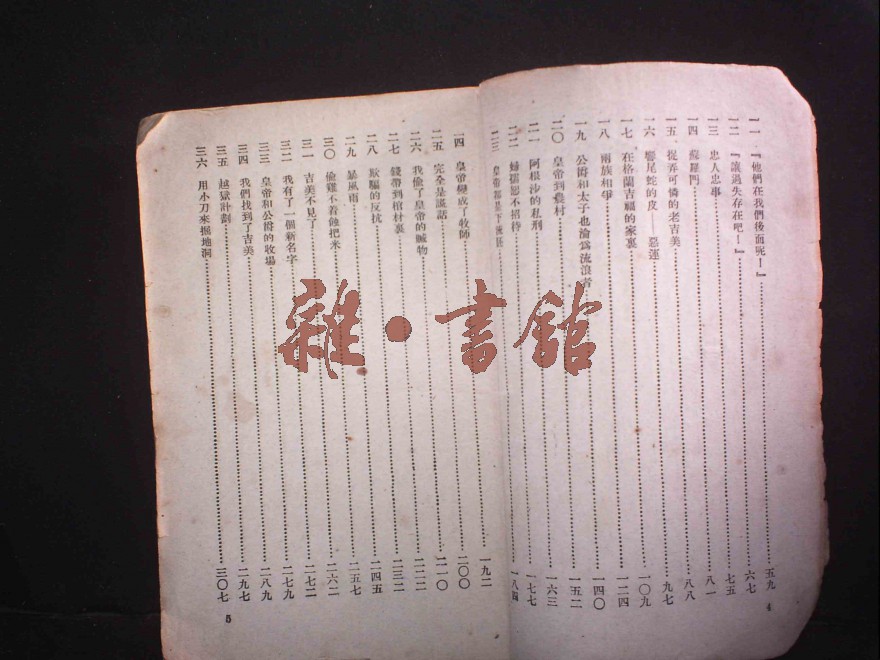 一一 『他們在我們後面呢！』 五九
一二 『讓過失存在吧！』 六七
一三 忠人忠事 七五
一四 蘇羅門 八一
一五 捉弄可憐的老吉美 八八
一六 響尾蛇的皮——惡運 九七
一七 在格蘭吉福的家裏 一〇九
一八 兩族相爭 一二四
一九 公爵和太子也淪為流浪者 一四〇
二〇 皇帝到農村 一五二
二一 阿根沙的私刑 一六三
二二 婦孺恕不招待 一七七
二三 皇帝都是下流 一八四
4
二四 皇帝變成了牧師 一九二
二五 完全是謊話 二〇〇
二六 我偷了皇帝的贓物 二一〇
二七 錢帶到棺材裏 二二二
二八 欺騙的反抗 二三二
二九 暴風雨 二四五
三〇 偷雞不着蝕把米 二五七
三一 吉美不見了 二六二
三二 我有了一個新名字 二七二
三三 皇帝和公爵的收場 二七九
三四 我們找到了吉美 二八九
三五 越獄計劃 二九七
三六 用小刀來掘地洞 三〇七
5
雜·書館